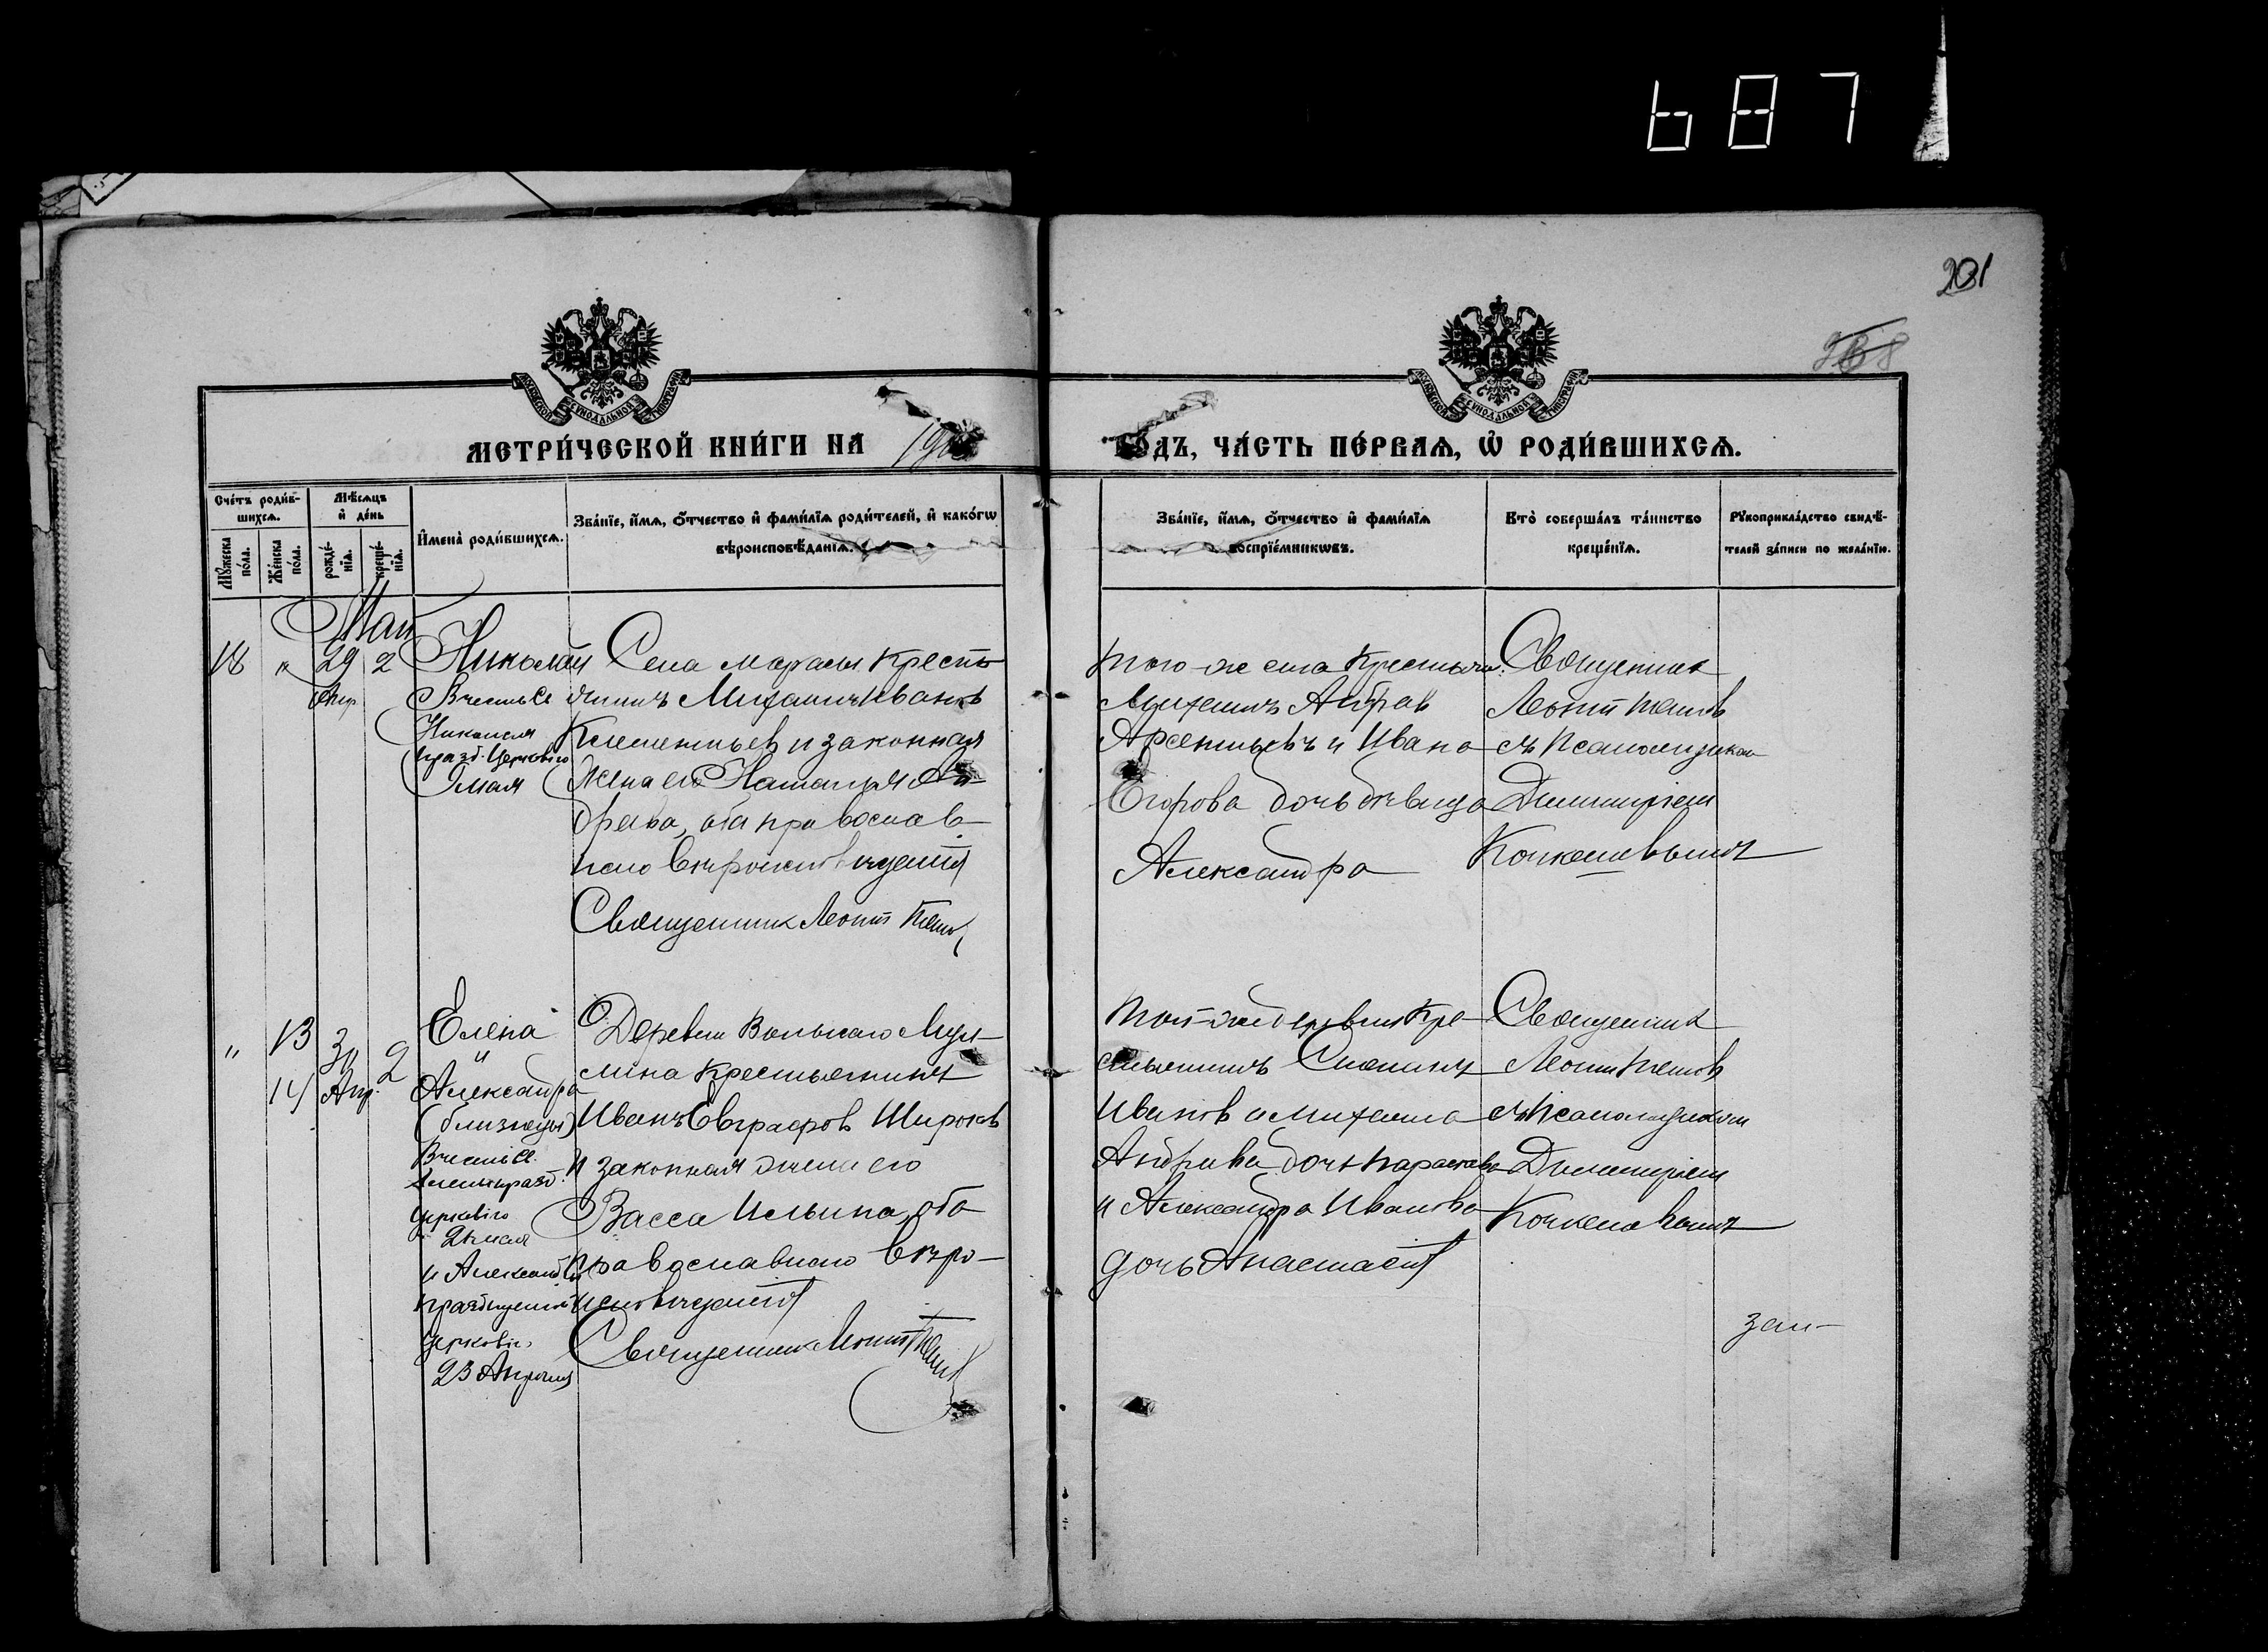 687
201
МОСКОВСКОЙ СУНОДАЛЬНОЙ ТИПОГРАФІИ
МОСКОВСКОЙ СУНОДАЛЬНОЙ ТИПОГРАФІИ
МЕТРИ́ЧЕСКОЙ КНИ́ГИ НА 19
ГОДЪ, ЧА́СТЬ ПЕ́РВАѦ, Ѽ РОДИ́ВШИХСѦ.
Сче́тъ роди́в-
шихсѧ.
Мѣ́сѧцъ
и҆ де́нь
Мꙋ́жеска
по́ла.
Же́нска
по́ла.
рожде́-
нїѧ.
креще́-
нїѧ.
И҆мена̀ роди́вшихсѧ.
Зва́нїе, и҆́мѧ, ѻ҆́тчество и҆ фами́лїѧ роди́телей, и҆ како́гѡ
вѣроисповѣ́данїѧ.
Зва́нїе, и҆́мѧ, ѻ҆́тчество и҆ фами́лїѧ
воспрїе́мникѡвъ.
Кто̀ соверша́лъ та́инство
креще́нїѧ.
Рꙋкоприкла́дство свидѣ́-
телей за́писи по жела́нїю.
Май
18 " 29 2
Апр.
Николай
Въ честь Св.
Николая
празд. Церковію
9 мая
Села Марасы Кресть
янинъ Михаилъ Иванов
Клементьев и законная
Жена его Наталья Ан-
дреева, оба православ-
наго вероисповѣданія
Священник Леонт
того-же села Крестьян.
Михаилъ Андрев
Арсентьевъ и Ивана
Егорова дочь девица
Александра
Священник
Леонт
съ Псаломщиком
Димитріем
" 13 30 2
14 Апр.
Елена
и
Александра
(близнецы)
В честь Св.
Елены празд.
Церковію
21 мая
и Александры
празднуемой
Церковію
23 Апреля
Деревни Вольнаго Мул-
лина Крестьянинъ
Иванъ Евграфов Широков
и законная жена его
Васса Ильина, оба
православнаго веро-
исповѣданія
Священник Леонт
той-же деревни Кре-
стьянинъ
Иванов и Михаила
Андреева дочь Параскева
и Александра Иванова
дочь Анастасія
Священник
Леонт
съ Псаломщиком
Димитріем